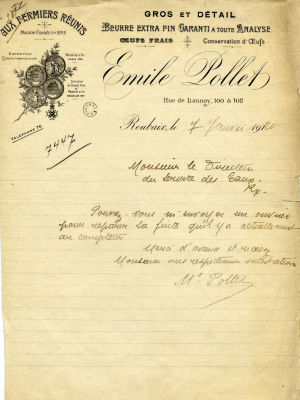 GROS ET DÉTAIL
AUX FERMIERS RÉUNIS
MAISON FONDÉE EN 1898
BEURRE EXTRA FIN GARANTI A TOUTE ANALYSE
ŒUFS FRAIS Conservation d'Œufs
Emile Pollet
Rue de Lannoy, 100 à 102
TÉLÉPHONE
Roubaix, le 7 Janvier 19
7447
Monsieur le Directeur
du Service des Eaux
Pouvez-vous m'envoyer un ouvrier
pour réparer la fuite qu'il y a actuellement
au compteur
Merci d'avance et recevez
Monsieur mes respectueuses salutations
Me Pollet